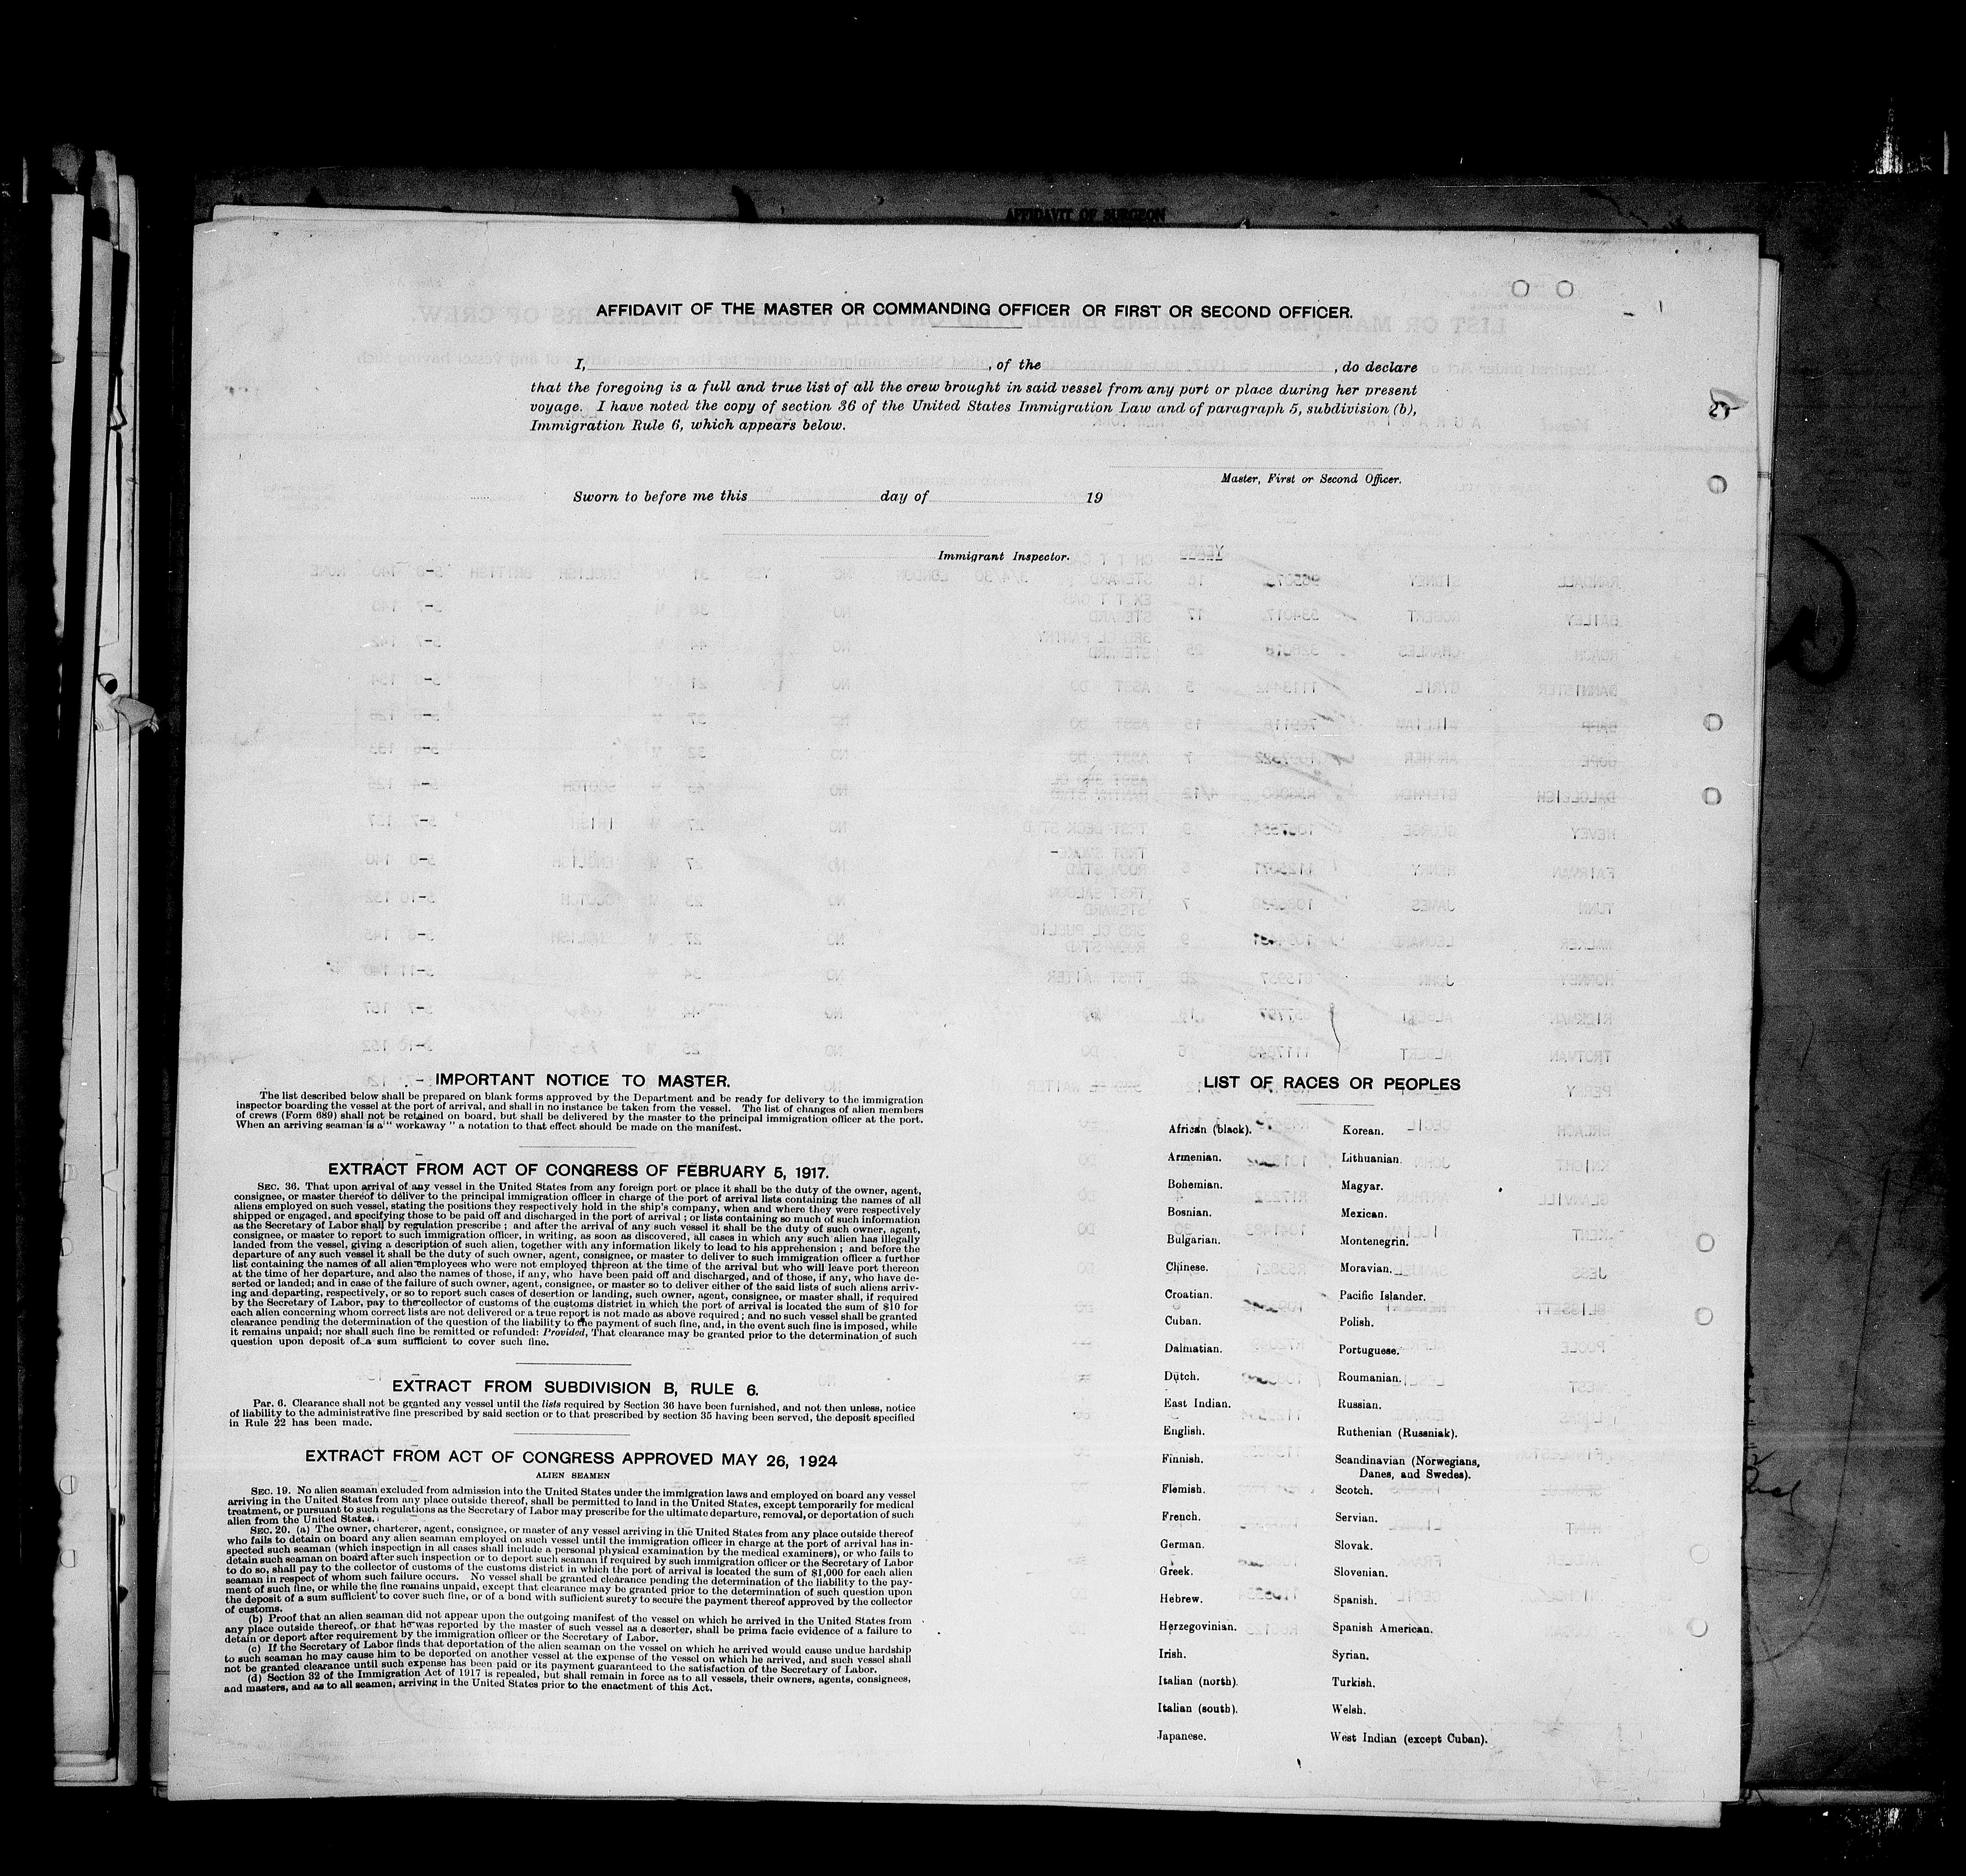 AFFIDAVIT OF SURGEON
AFFIDAVIT OF THE MASTER OR COMMANDING OFFICER OR FIRST OR SECOND OFFICER.
I, , of the , do declare
that the foregoing is a full and true list of all the crew brought in said vessel from any port or place during her present
voyage. I have noted the copy of section 36 of the United States Immigration Law and of paragraph 5, subdivision (b),
Immigration Rule 6, which appears below.
Master, First or Second Officer.
Sworn to before me this day of 19
Immigrant Inspector.
IMPORTANT NOTICE TO MASTER.
The list described below shall be prepared on blank forms approved by the Department and be ready for delivery to the immigration
inspector boarding the vessel at the port of arrival, and shall in no instance be taken from the vessel. The list of changes of alien members
of crews (Form 689) shall not be retained on board, but shall be delivered by the master to the principal immigration officer at the port.
When an arriving seaman is a " workaway " a notation to that effect should be made on the manifest.
EXTRACT FROM ACT OF CONGRESS OF FEBRUARY 5, 1917.
SEC. 36. That upon arrival of any vessel in the United States from any foreign port or place it shall be the duty of the owner, agent,
consignee, or master thereof to deliver to the principal immigration officer in charge of the port of arrival lists containing the names of all
aliens employed on such vessel, stating the positions they respectively hold in the ship's company, when and where they were respectively
shipped or engaged, and specifying those to be paid off and discharged in the port of arrival ; or lists containing so much of such information
as the Secretary of Labor shall by regulation prescribe ; and after the arrival of any such vessel it shall be the duty of such owner, agent,
consignee, or master to report to such immigration officer, in writing, as soon as discovered, all cases in which any such alien has illegally
landed from the vessel, giving a description of such alien, together with any information likely to lead to his apprehension ; and before the
departure of any such vessel it shall be the duty of such owner, agent, consignee, or master to deliver to such immigration officer a further
list containing the names of all alien employees who were not employed thereon at the time of the arrival but who will leave port thereon
at the time of her departure, and also the names of those, if any, who have been paid off and discharged, and of those, if any, who have de-
serted or landed; and in case of the failure of such owner, agent, consignee, or master so to deliver either of the said lists of such aliens arriv-
ing and departing, respectively, or so to report such cases of desertion or landing, such owner, agent, consignee, or master shall, if required
by the Secretary of Labor, pay to the collector of customs of the customs district in which the port of arrival is located the sum of $10 for
each alien concerning whom correct lists are not delivered or a true report is not made as above required ; and no such vessel shall be granted
clearance pending the determination of the question of the liability to the payment of such fine, and, in the event such fine is imposed, while
it remains unpaid; nor shall such fine be remitted or refunded: Provided, That clearance may be granted prior to the determination of such
question upon deposit of a sum sufficient to cover such fine.
EXTRACT FROM SUBDIVISION B, RULE 6.
Par. 6. Clearance shall not be granted any vessel until the lists required by Section 36 have been furnished, and not then unless, notice
of liability to the administrative fine prescribed by said section or to that prescribed by section 35 having been served, the deposit specified
in Rule 22 has been made.
EXTRACT FROM ACT OF CONGRESS APPROVED MAY 26, 1924
ALIEN SEAMEN
SEC. 19. No alien seaman excluded from admission into the United States under the immigration laws and employed on board any vessel
arriving in the United States from any place outside thereof, shall be permitted to land in the United States, except temporarily for medical
treatment, or pursuant to such regulations as the Secretary of Labor may prescribe for the ultimate departure, removal, or deportation of such
alien from the United States.
SEC. 20. (a) The owner, charterer, agent, consignee, or master of any vessel arriving in the United States from any place outside thereof
who fails to detain on board any alien seaman employed on such vessel until the immigration officer in charge at the port of arrival has in-
spected such seaman (which inspection in all cases shall include a personal physical examination by the medical examiners), or who fails to
detain such seaman on board after such inspection or to deport such seaman if required by such immigration officer or the Secretary of Labor
to do so, shall pay to the collector of customs of the customs district in which the port of arrival is located the sum of $1,000 for each alien
seaman in respect of whom such failure occurs. No vessel shall be granted clearance pending the determination of the liability to the pay-
ment of such fine, or while the fine remains unpaid, except that clearance may be granted prior to the determination of such question upon
the deposit of a sum sufficient to cover such fine, or of a bond with sufficient surety to secure the payment thereof approved by the collector
of customs.
(b) Proof that an alien seaman did not appear upon the outgoing manifest of the vessel on which he arrived in the United States from
any place outside thereof, or that he was reported by the master of such vessel as a deserter, shall be prima facie evidence of a failure to
detain or deport after requirement by the immigration officer or the Secretary of Labor.
(c) If the Secretary of Labor finds that deportation of the alien seaman on the vessel on which he arrived would cause undue hardship
to such seaman he may cause him to be deported on another vessel at the expense of the vessel on which he arrived, and such vessel shall
not be granted clearance until such expense has been paid or its payment guaranteed to the satisfaction of the Secretary of Labor.
(d) Section 32 of the Immigration Act of 1917 is repealed, but shall remain in force as to all vessels, their owners, agents, consignees,
and masters, and as to all seamen, arriving in the United States prior to the enactment of this Act.
LIST OF RACES OR PEOPLES
African (black).
Armenian.
Bohemian.
Bosnian.
Bulgarian.
Chinese.
Croatian.
Cuban.
Dalmatian.
Dutch.
East Indian.
English.
Finnish.
Flemish.
French.
German.
Greek.
Hebrew.
Herzegovinian.
Irish.
Italian (north).
Italian (south).
Japanese.
Korean.
Lithuanian.
Magyar.
Mexican.
Montenegrin.
Moravian.
Pacific Islander.
Polish.
Portuguese.
Roumanian.
Russian.
Ruthenian (Russniak).
Scandinavian (Norwegians,
Danes, and Swedes).
Scotch.
Servian.
Slovak.
Slovenian.
Spanish.
Spanish American.
Syrian.
Turkish.
Welsh.
West Indian (except Cuban).